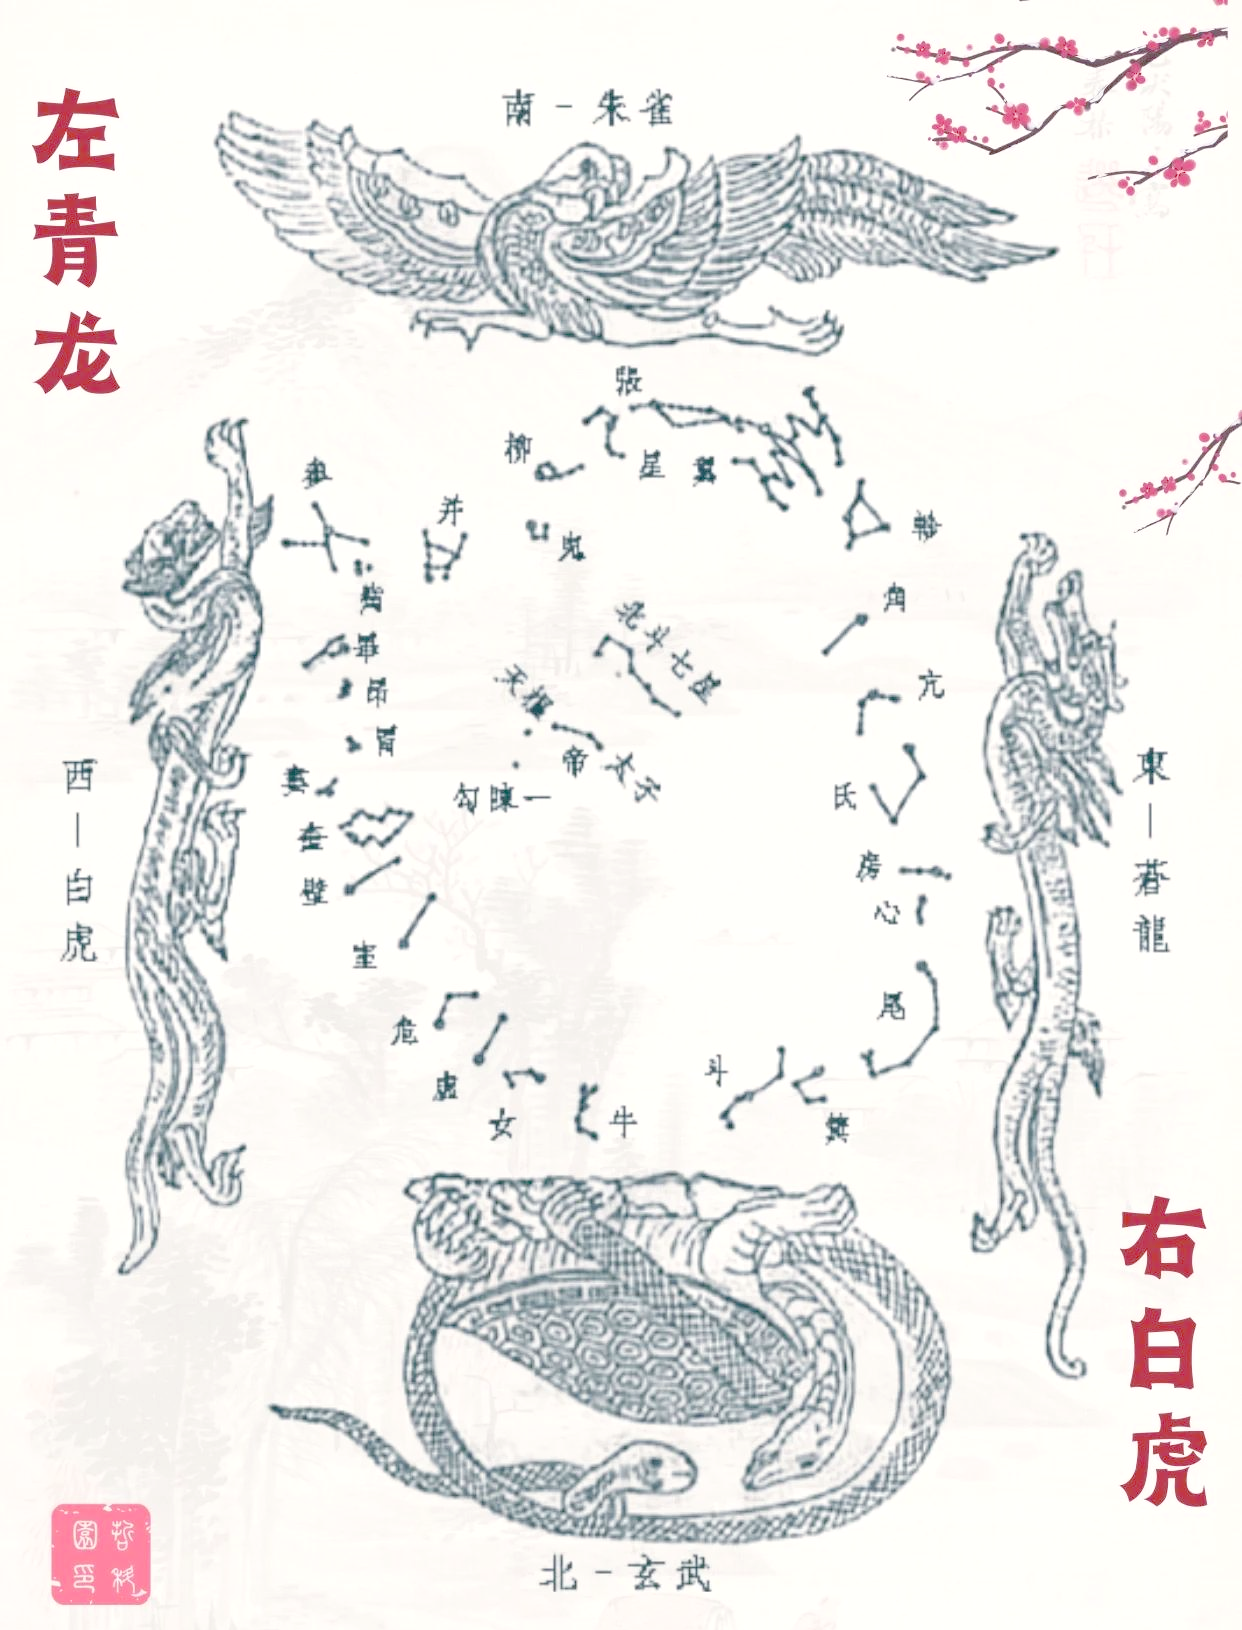 左青龙
南－朱雀
張
柳
星
翼
參
井
鬼
軫
觜
角
畢
北斗七星
昴
天樞
亢
胃
帝
太子
東－蒼龍
西－白虎
婁
勾陳一
氐
奎
房
壁
心
室
尾
危
虛
斗
女
牛
箕
右白虎
北－玄武